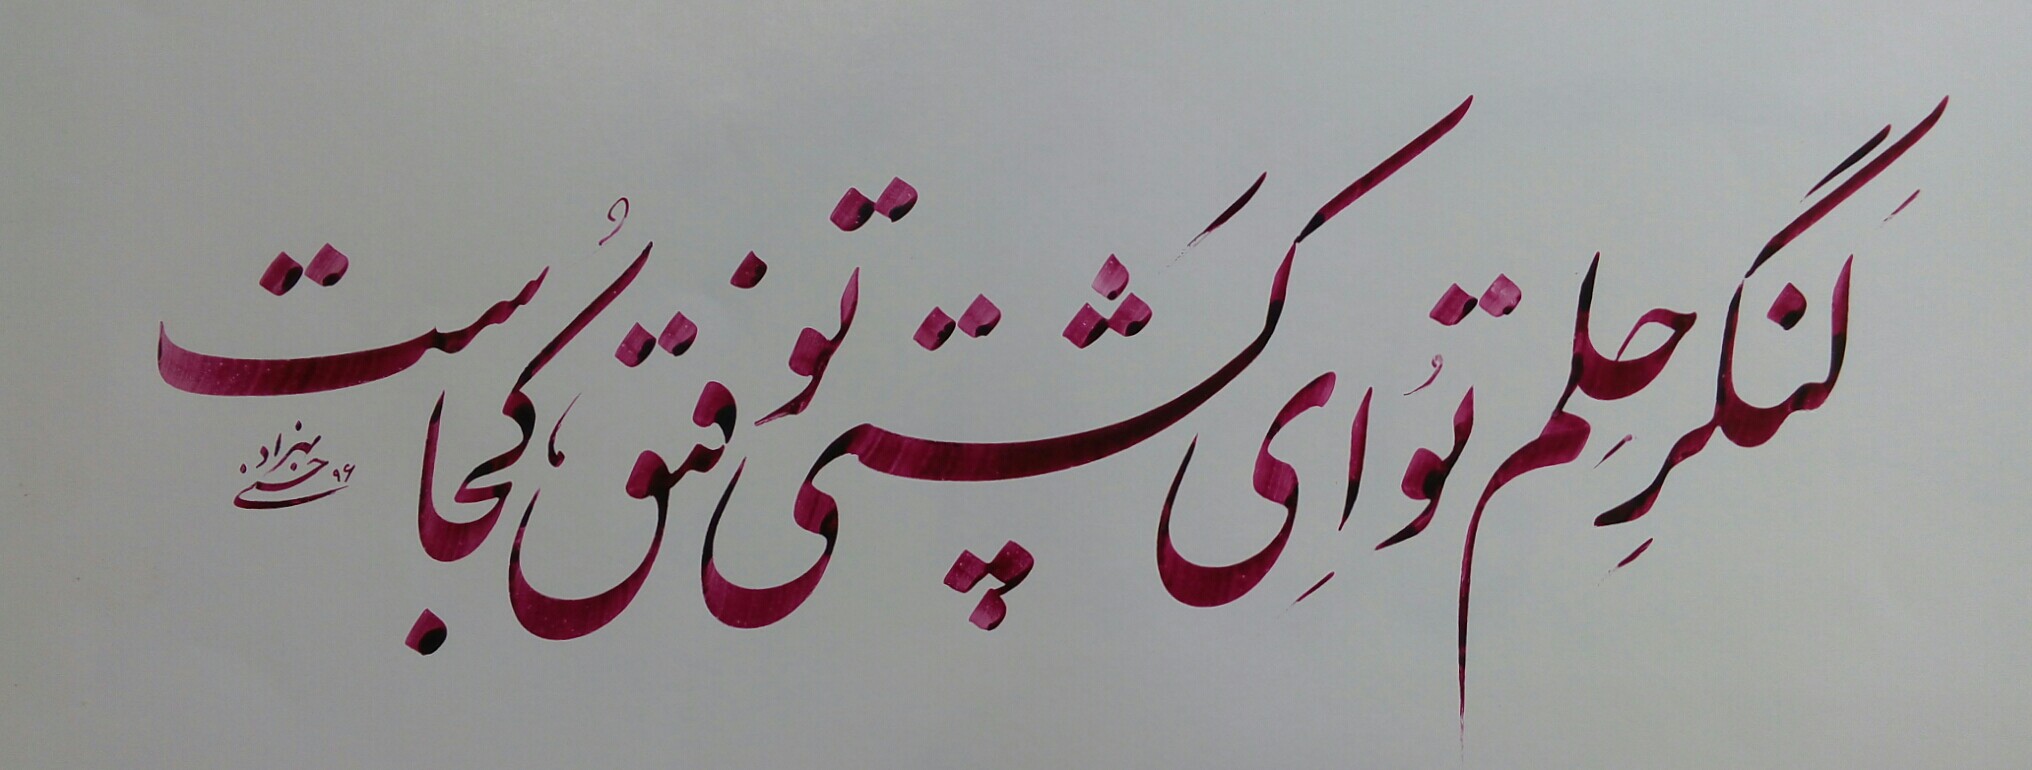 لَنگرِ حِلم تُو اِی کَشتی توفیقُ کجاست
بهزاد حسنی ۹۶